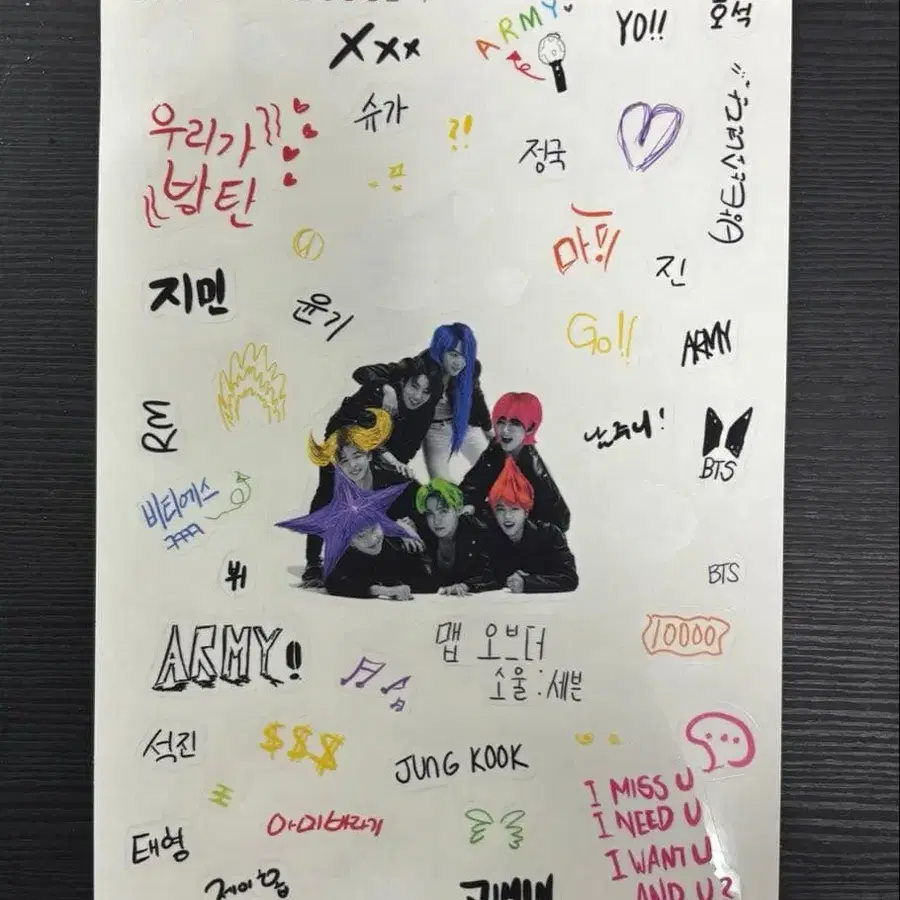 XXX
ARMY
YO!!
호석
우리가
방탄
슈가
?!
정국
방탄소년단
지민
윤기
아미
진
Go!!
ARMY
RM
남주니!
BTS
비티에스
ㅋㅋㅋㅋ
뷔
BTS
ARMY!
맵 오브더
소울:세븐
10000
석진
$$$
JUNG KOOK
I MISS U
I NEED U
I WANT U
AND U?
태형
아미바라기
제이홉
JIMIN